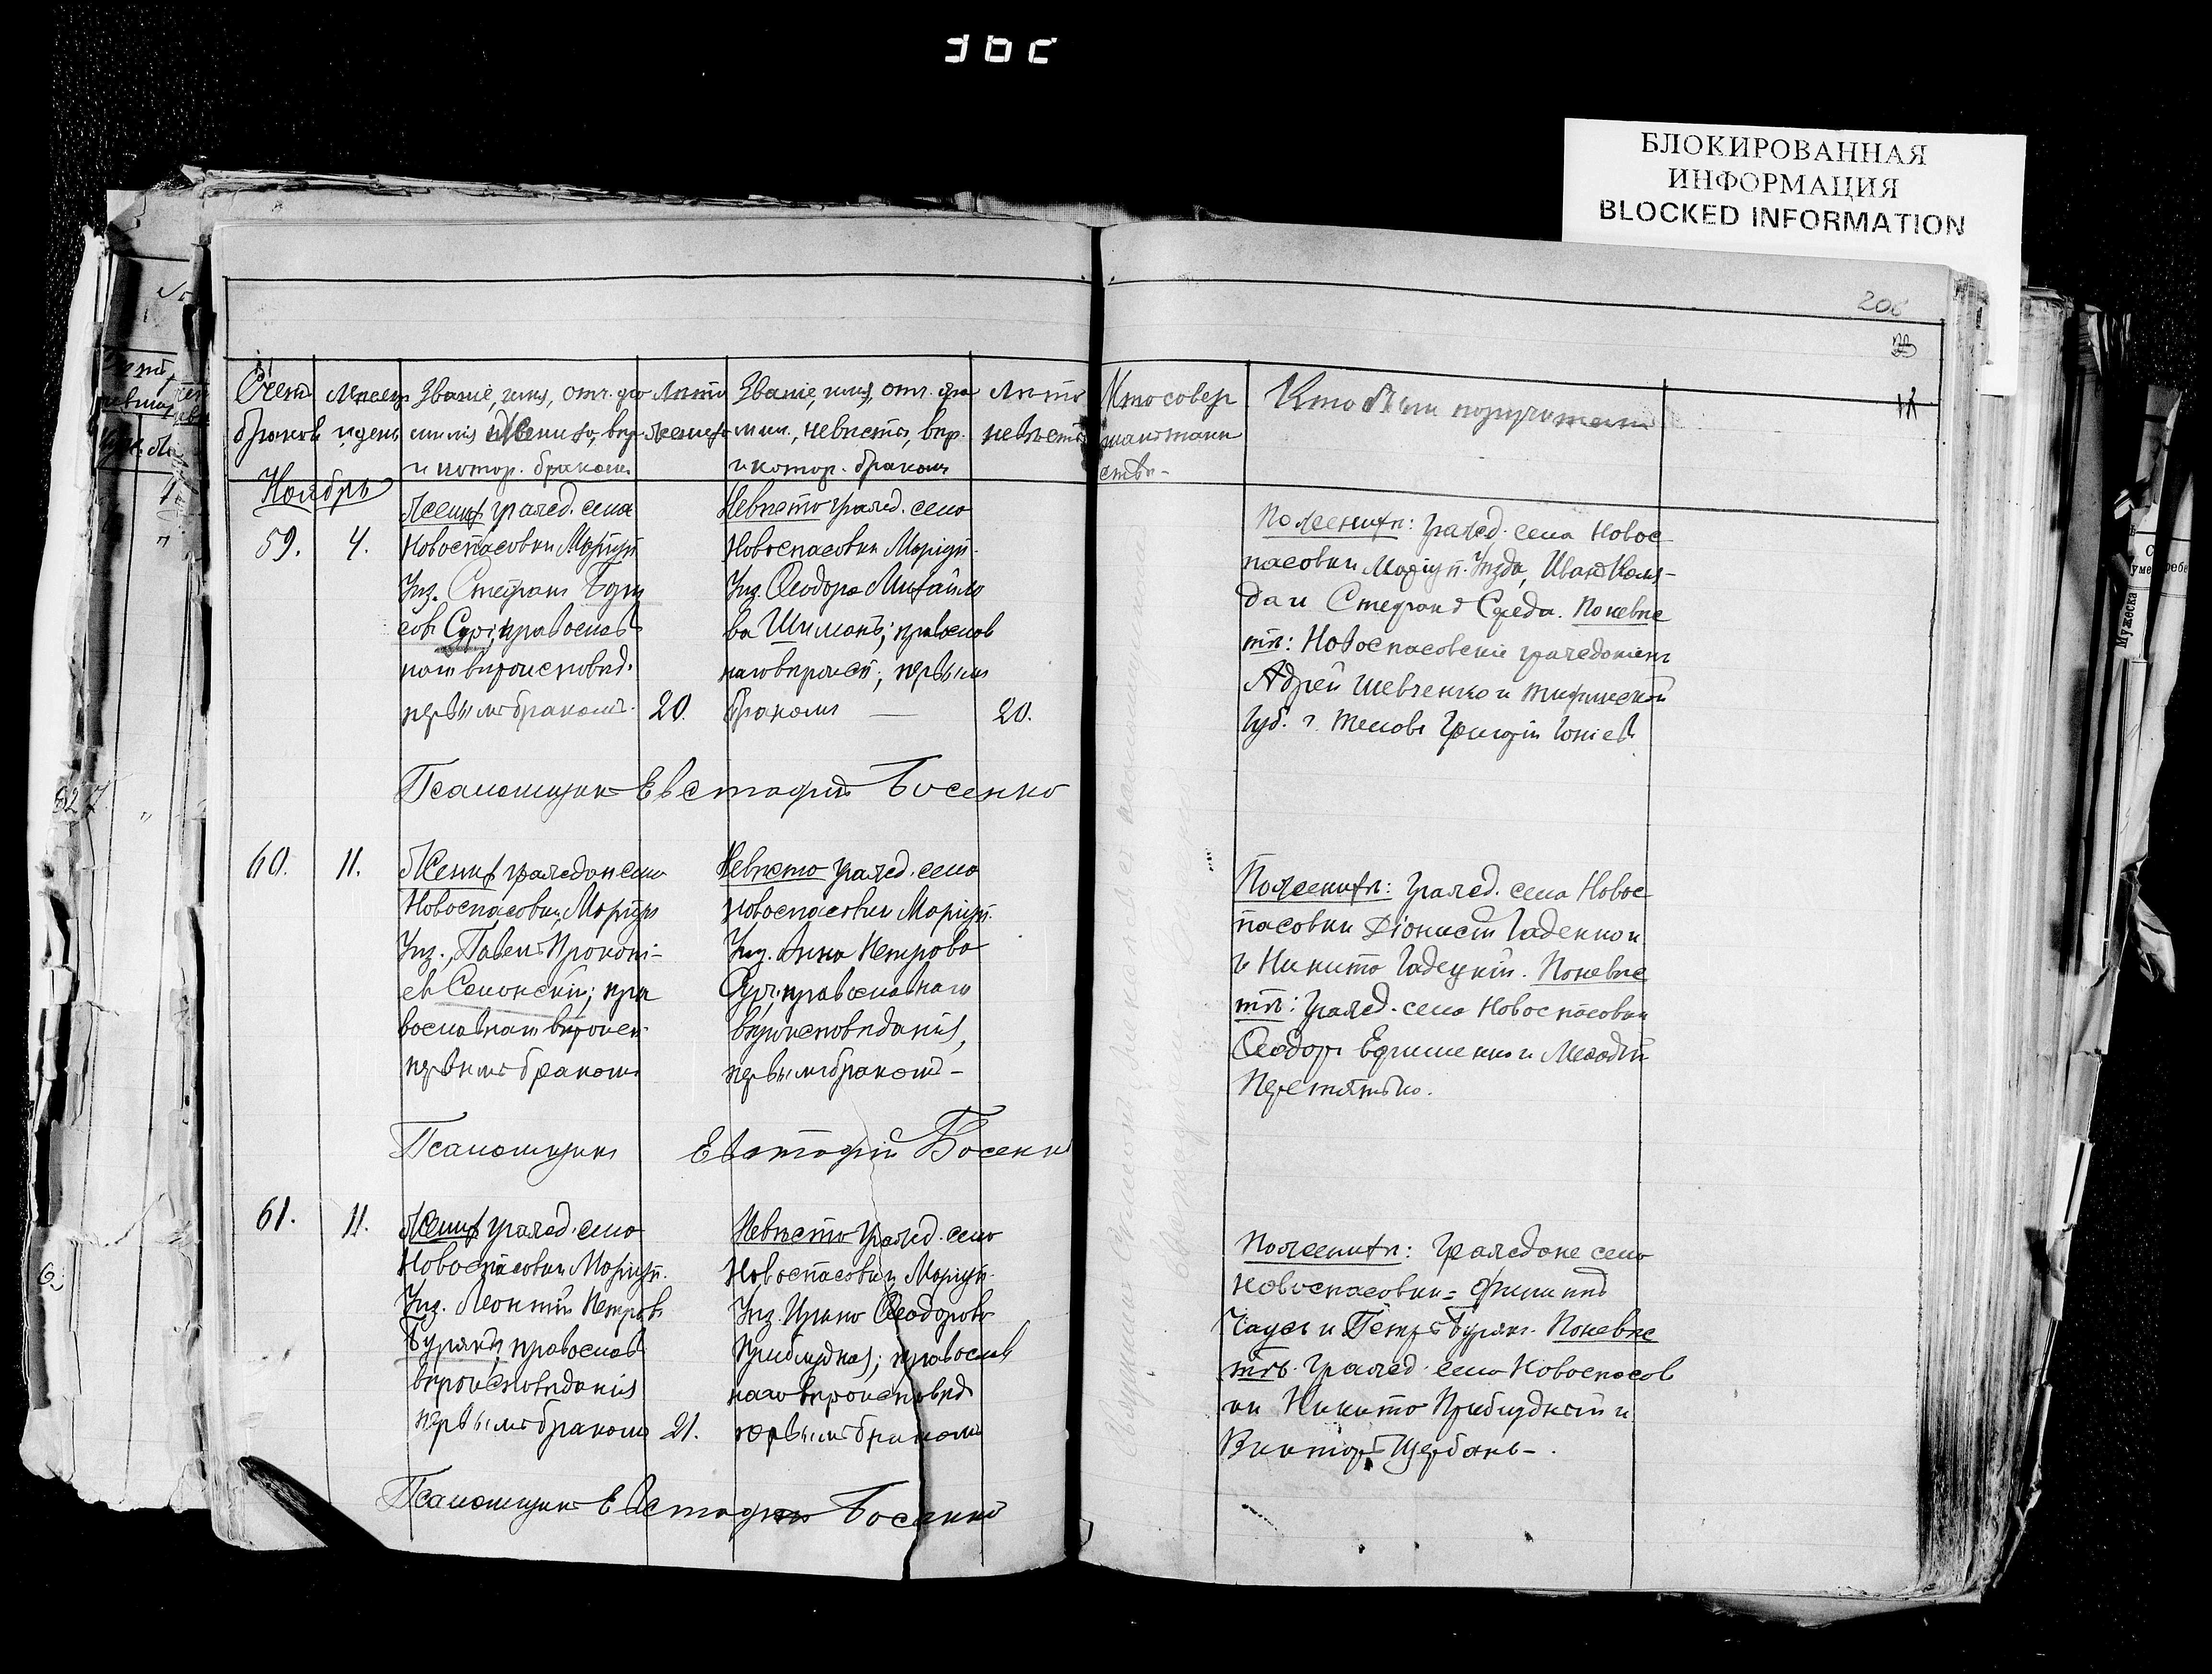 БЛОКИРОВАННАЯ
ИНФОРМАЦИЯ
BLOCKED INFORMATION
Счетъ браковъ
Мѣсяцъ и день
Званіе, имя, отч. фамилія жениха, вѣр. и котор. бракомъ
Лѣта жениха
Званіе, имя, отч. фамил., невѣсты, вѣр. и котор. бракомъ
Лѣта невѣсты
Кто совершалъ таинство
Кто были поручители
Ноябрь
59.
4.
Женихъ гражд. села
Новоспасовки Маріуп
Уѣз. Стефанъ
православ
наго вѣроисповѣд.
первымъ бракомъ.
20.
Невѣста гражд. села
Новоспасовки Маріуп.
Уѣз. Ѳеодора Михайло
ва Шиманъ; православ
наго вѣроисп; первымъ
бракомъ
20.
По женихѣ: гражд. села Новос
пасовки Маріуп. Уѣзда, Иванъ
да и Стефанъ Среда. По невѣс
тѣ: Новоспасовскіе граждане
Адрей Шевченко и Тифлиской
Губ. г. Григорій
Псаломщикъ Евстафій Босенко
60.
11.
Женихъ граждан села
Новоспасовки, Маріуп
Уѣз., Павелъ Прокопі-
евъ Салонскій; пра
вославнаго вѣроисп
первымъ бракомъ
Невѣста гражд. села
Новоспасовки Маріуп.
Уѣз. Анна Петрова
православнаго
вѣроисповѣданія,
первымъ бракомъ -
По женихѣ: гражд. села Новос
пасовки Діонисій Гаденко и
Никита Гадецкій. По невѣс
тѣ: гражд. села Новоспасовки
Ѳеодоръ Ефименко и Меѳодій
Перетятько.
Псаломщикъ Евстафій Босенко
61.
11.
Женихъ гражд. села
Новоспасовки Маріуп.
Уѣз. Леонтій Петровъ
Бурякъ, православ
вѣроисповѣданія
первымъ бракомъ
21.
Невѣста гражд. села
Новоспасовки Маріуп.
Уѣз. Ирина Ѳеодорова
Приблудная; православ
наго вѣроисповѣд
первымъ бракомъ
По женихѣ: граждане села
Новоспасовки= Филиппъ
Чаусъ и Петръ Бурякъ. По невѣс
тѣ. гражд. села Новоспасов
ки Никита Приблудный и
Викторъ Щербань-.
Псаломщикъ Евстафій Босенко